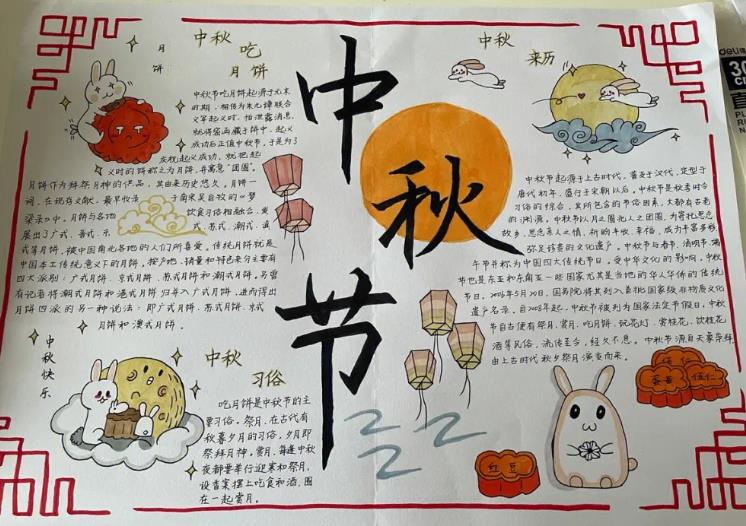 中秋吃月饼
月饼
中秋节吃月饼起源于元末
时期,相传为朱元璋联合
义军起义时,怕泄露消息,
就将密函藏于饼中,起义
成功后正值中秋节,于是为了
庆祝起义成功,就把起
义时的饼称之为月饼,并寓意“团圆”。
月饼作为拜祭月神的供品,其由来历史悠久,月饼一
词,在现有文献,最早收录于南宋吴自牧的《梦
梁录》中,月饼与各地饮食习俗相融合,
展出了广式、晋式、京式、苏式、潮式、滇
式等月饼,被中国南北各地的人们所喜爱。传统月饼就是
中国本土传统意义下的月饼,按产地、销量和特色来分主要有
四大派别:广式月饼、京式月饼、苏式月饼和潮式月饼。另有
记者将潮式月饼和港式月饼归并入广式月饼,进而得出
月饼四派的另一种说法:即广式月饼、苏式月饼、京式
月饼和滇式月饼。
中秋快乐
中秋习俗
吃月饼是中秋节的主
要习俗。祭月,在古代有
秋暮夕月的习俗,夕月即
祭拜月神。赏月,每逢中秋
夜都要举行迎寒和祭月,
设香案摆上吃食和酒,围
在一起赏月。
中秋节
中秋来历
中秋节起源于上古时代,普及于汉代,定型于
唐代初年,盛行于宋朝以后。中秋节是秋季时令
习俗的综合,其所包含的节俗因素,大都有古老
的渊源。中秋节以月之圆兆人之团圆,为寄托思念
故乡,思念亲人之情,祈盼丰收、幸福,成为丰富多彩、
弥足珍贵的文化遗产。中秋节与春节、清明节、端
午节并称为中国四大传统节日。受中华文化的影响,中秋
节也是东亚和东南亚一些国家尤其是当地的华人华侨的传统
节日。2006年5月20日,国务院将其列入首批国家级非物质文化
遗产名录。自2008年起,中秋节被列为国家法定节假日。中秋
节自古便有祭月、赏月、吃月饼、玩花灯、赏桂花、饮桂花
酒等民俗,流传至今,经久不息。中秋节源自天象崇拜,
由上古时代秋夕祭月演变而来。
伍仁
莲蓉
五仁
红豆
deli